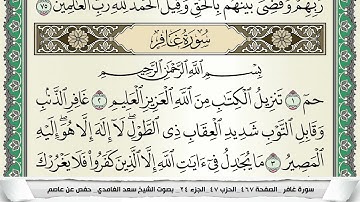 رَبِّهِمْ وَقُضِيَ بَيْنَهُم بِالْحَقِّ وَقِيلَ الْحَمْدُ لِلَّهِ رَبِّ الْعَالَمِينَ ٧٥
سُورَةُ غَافِرٍ
بِسْمِ اللَّهِ الرَّحْمَٰنِ الرَّحِيمِ
حمٓ ١ تَنزِيلُ الْكِتَٰبِ مِنَ اللَّهِ الْعَزِيزِ الْعَلِيمِ ٢ غَافِرِ الذَّنۢبِ
وَقَابِلِ التَّوْبِ شَدِيدِ الْعِقَابِ ذِي الطَّوْلِ لَآ إِلَٰهَ إِلَّا هُوَ إِلَيْهِ
الْمَصِيرُ ٣ مَا يُجَٰدِلُ فِيٓ ءَايَٰتِ اللَّهِ إِلَّا الَّذِينَ كَفَرُوا فَلَا يَغْرُرْكَ
سورة غافر _ الصفحة ٤٦٧ _ الحزب ٤٧ _ الجزء ٢٤ _ بصوت الشيخ سعد الغامدي _ حفص عن عاصم